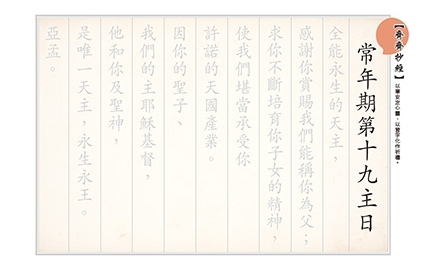 【齊齊抄經】
以筆安定心靈，以習字化作祈禱。
常年期第十九主日
全能永生的天主，
感謝你賞賜我們能稱你為父；
求你不斷培育你子女的精神，
使我們堪當承受你
許諾的天國產業。
因你的聖子、
我們的主耶穌基督，
他和你及聖神，
是唯一天主，永生永王。
亞孟。